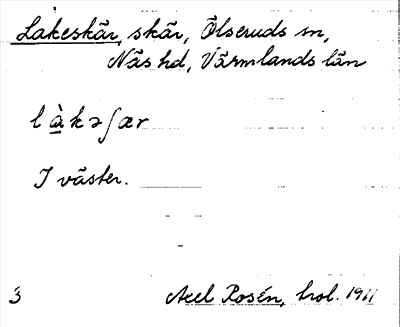 Lakeskär, skär, Ölseruds sn,
Näs hd, Värmlands län
l à k ə ʃ ær
I väster.
3 Axel Rosén, kol. 1911